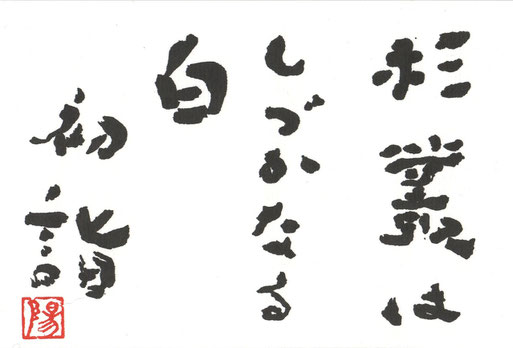 杉叢は
しづかなる
白
初詣
陽